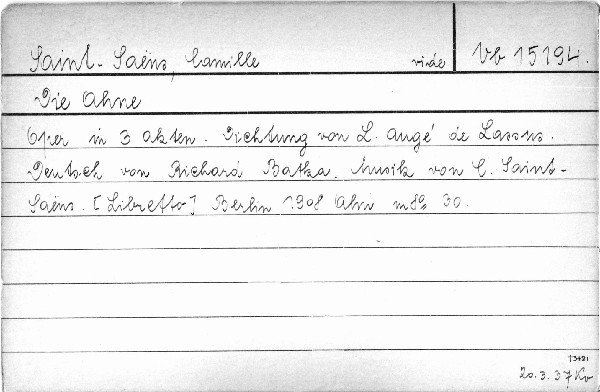 Saint-Saëns, Camille vide Vb 15194.
Die Ahne
Oper in 3 Akten. Dichtung von L. Augé de Lassus.
Deutsch von Richard Batka. Musik von C. Saint-
Saëns. [Libretto] Berlin 1908 Ahn m8° 30.
13421
20.3.37 Kv